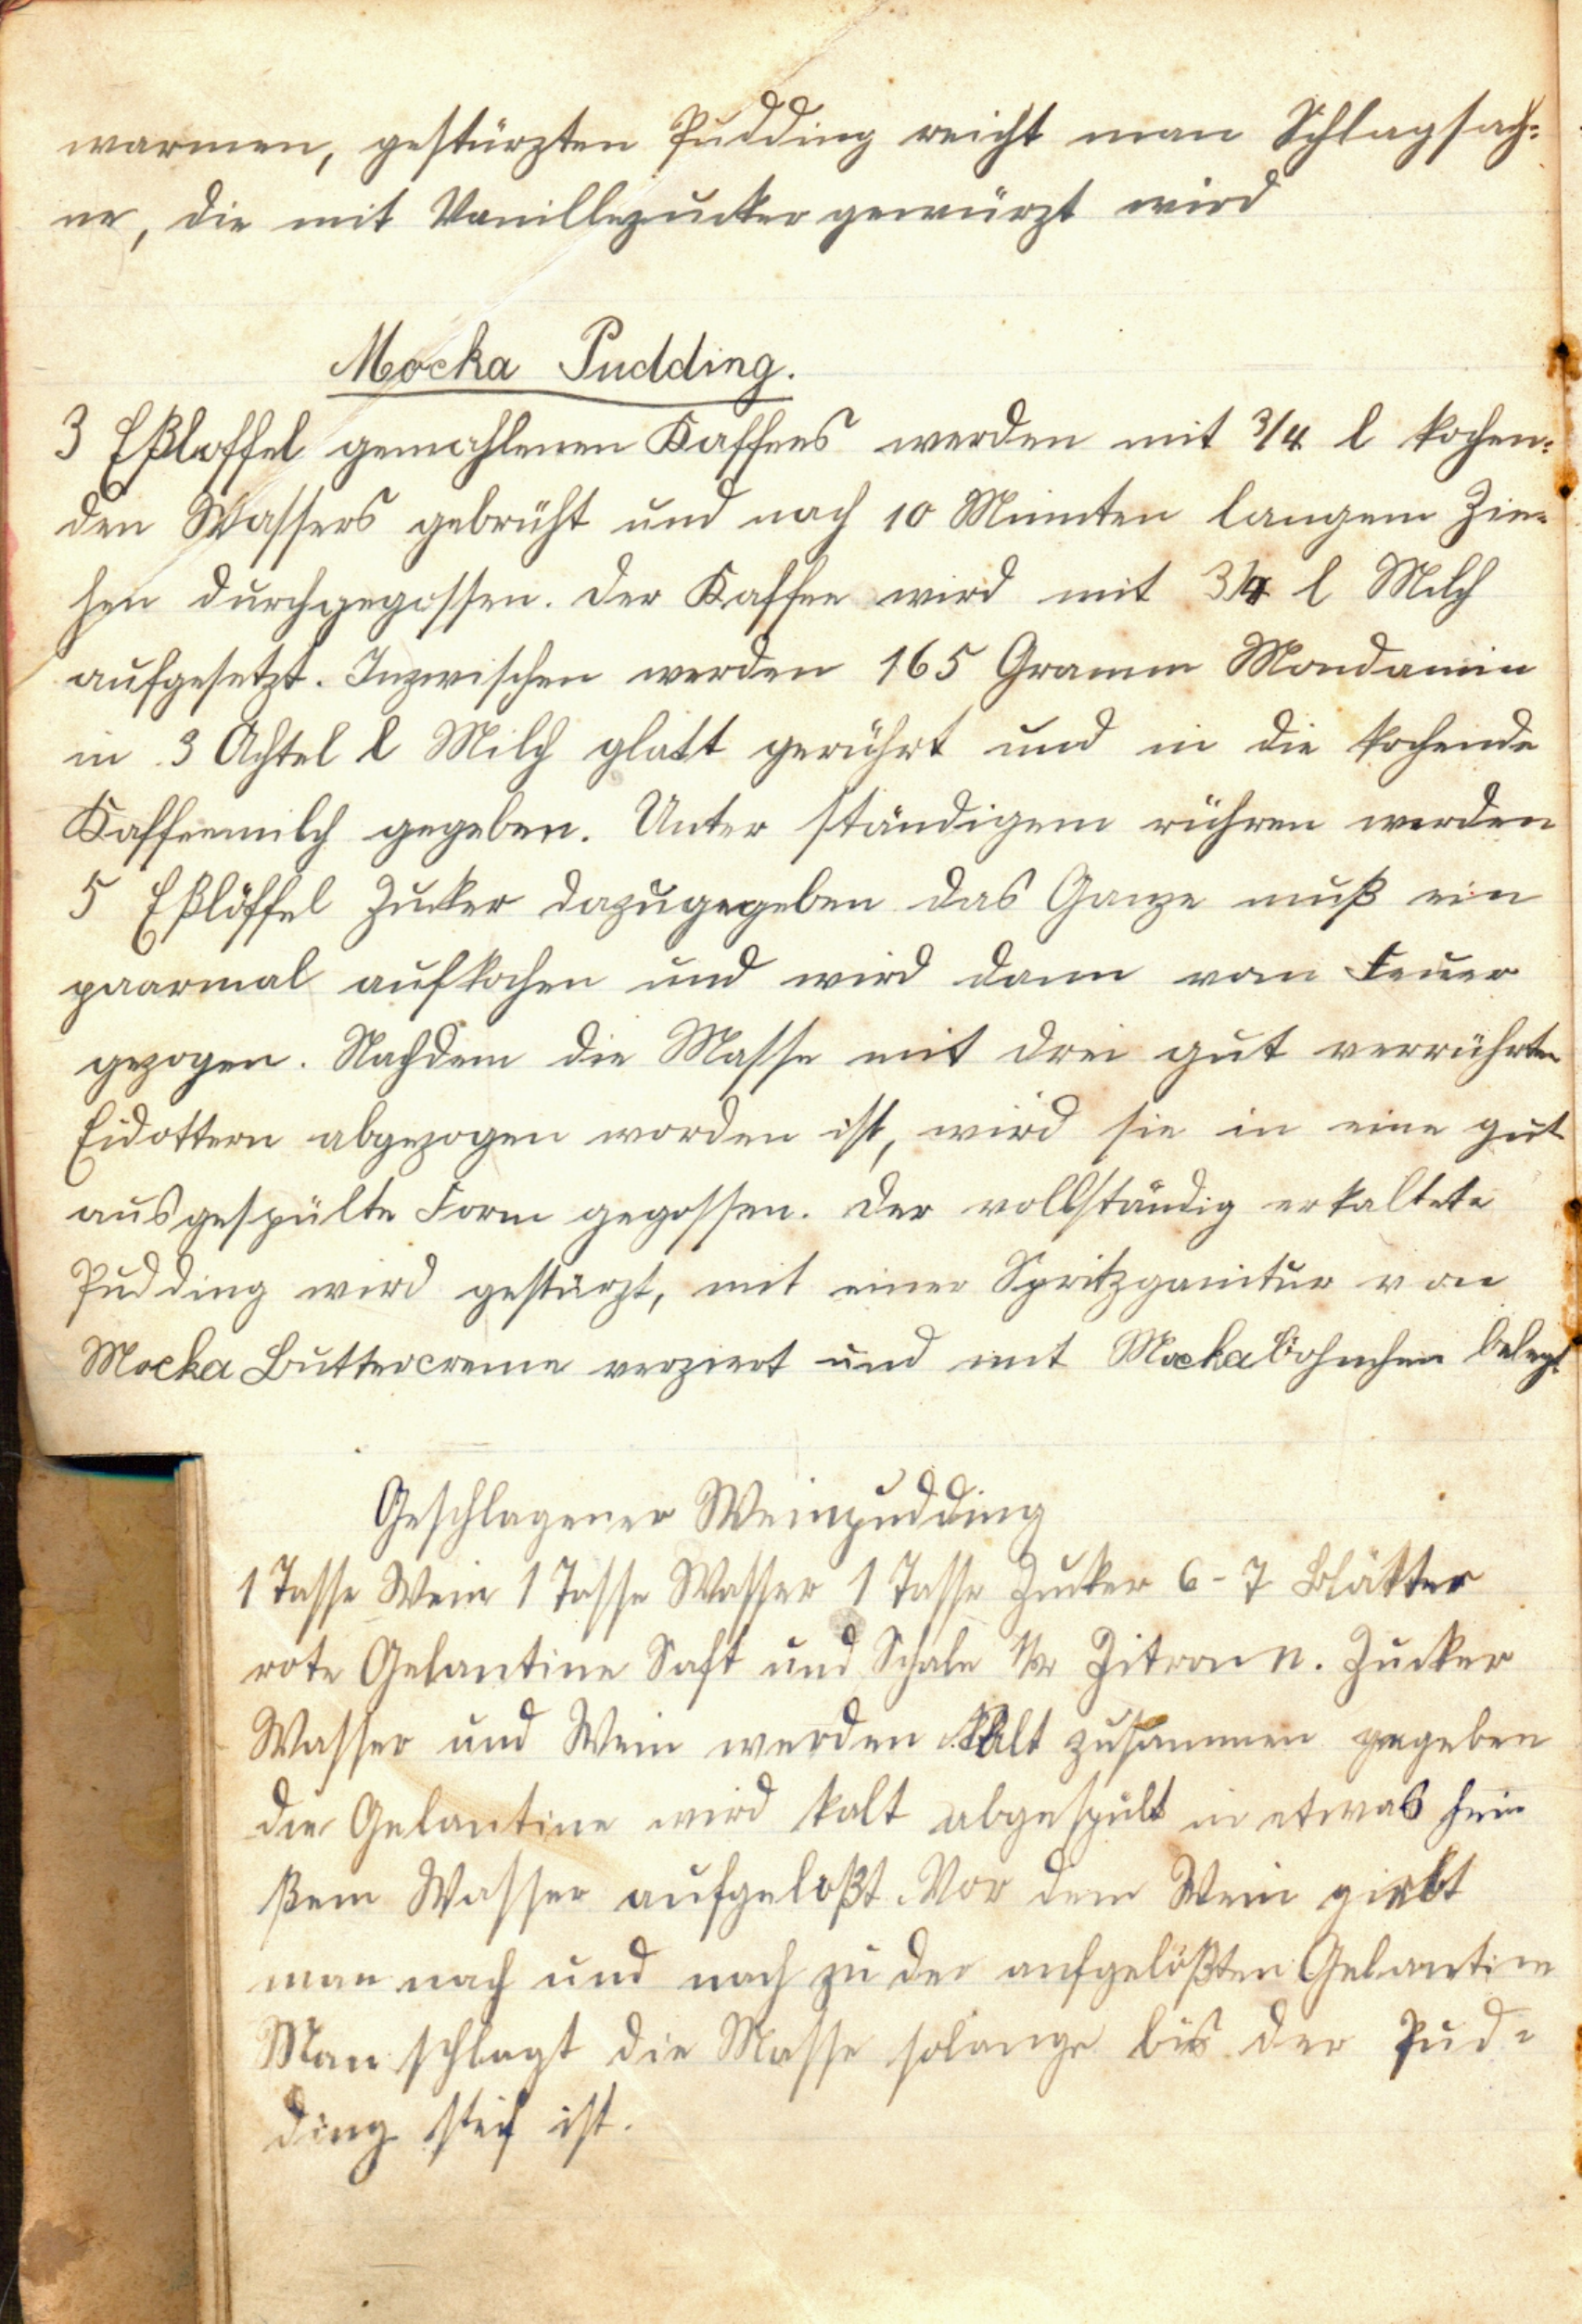 warmen, gestürzten Pudding reicht man Schlagsah=
ne, die mit Vanillezucker gewürzt wird
Mocka Pudding.
3 Eßloffel gemahlenen Kaffees werden mit 3/4 l kochen=
den Wassers gebrüht und nach 10 Minuten langem Zie=
hen durchgegossen. Der Kaffee wird mit 3/4 l Milch
aufgesetzt. Inzwischen werden 165 Gramm Mondamin
in 3 Achtel l Milch glatt gerührt und in die kochende
Kaffeemilch gegeben. Unter ständigem rühren werden
5 Eßlöffel Zucker dazugegeben das Ganze muß ein
paarmal aufkochen und wird dann vom Feuer
gezogen. Nachdem die Masse mit drei gut verrührten
Eidottern abgezogen worden ist, wird sie in eine gut
ausgespülte Form gegossen. Der vollständig erkaltete
Pudding wird gestürzt, mit einer Spritzganitur von
Mocka Buttercreme verziert und mit Mocka böhnchen belegt.
Geschlagener Weinpudding
1 Tasse Wein 1 Tasse Wasser 1 Tasse Zucker 6-7 Blätter
rote Gelantine Saft und Schale Zitrone. Zucker
Wasser und Wein werden kalt zusammen gegeben
die Gelantine wird kalt abgespült in etwas hei
ßem Wasser aufgeloßt. Vor dem Wein giebt
man nach und nach zu der aufgelößten Gelantine
Man schlagt die Masse solange bis der Pud=
ding steif ist.